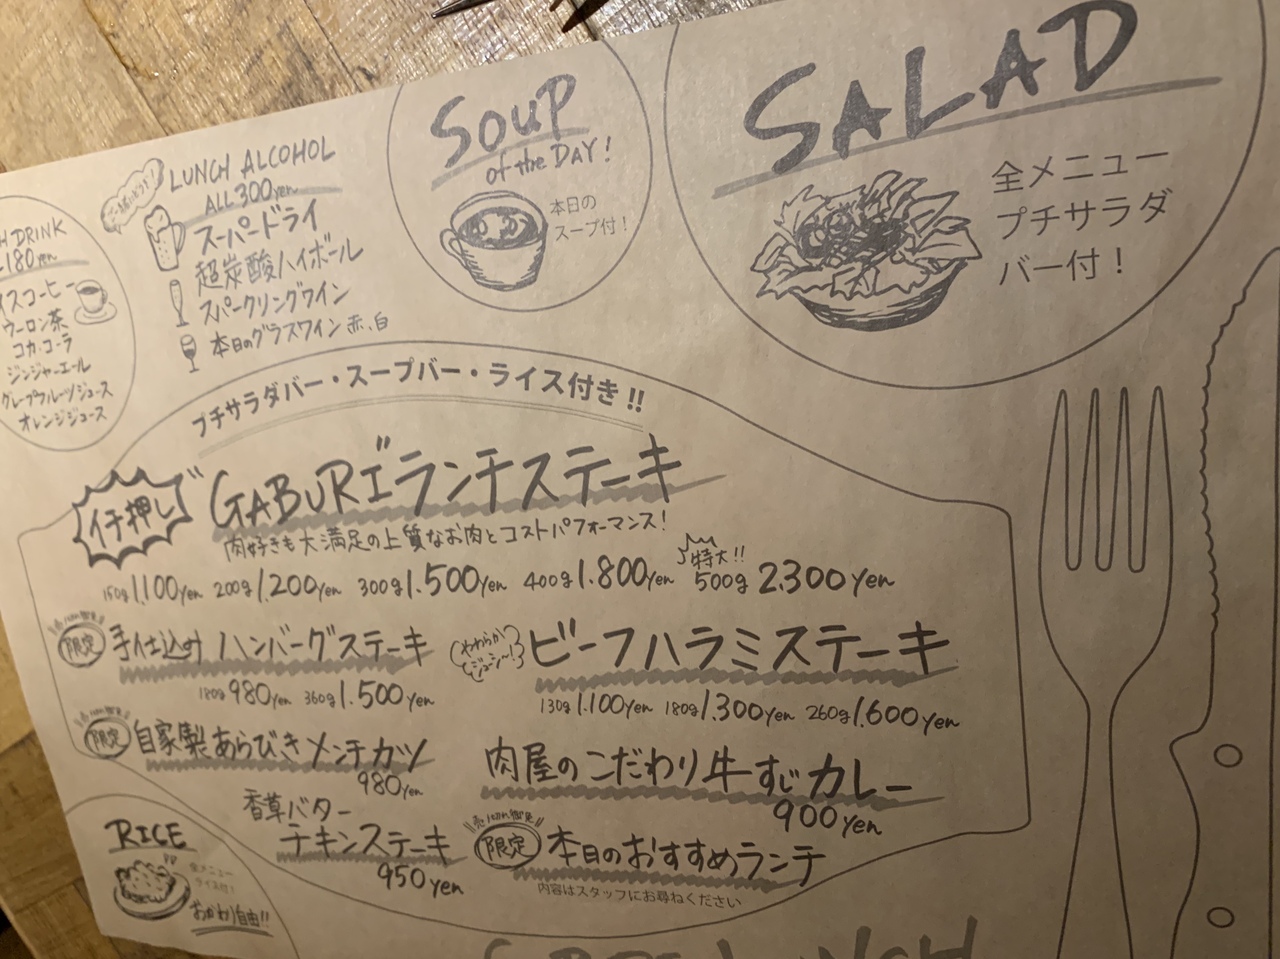 SALAD
全メニュー
プチサラダ
バー付！
SOUP
of the DAY!
本日の
スープ付！
LUNCH ALCOHOL
ALL 300yen
スーパードライ
超炭酸ハイボール
スパークリングワイン
本日のグラスワイン 赤、白
H DRINK
180yen
イスコーヒー
ウーロン茶
コカ・コーラ
ジンジャーエール
グレープフルーツジュース
オレンジジュース
プチサラダバー・スープバー・ライス付き!!
イチ押し
GABURI ランチステーキ
肉好きも大満足の上質なお肉とコストパフォーマンス！
150g 1.100yen 200g 1.200yen 300g 1.500yen 400g 1.800yen 特大!! 500g 2.300yen
売り切れ御免
限定 手仕込み ハンバーグステーキ
180g 980yen 360g 1.500yen
やわらか
ジューシー！
ビーフハラミステーキ
130g 1.100yen 180g 1.300yen 260g 1.600yen
売り切れ御免
限定 自家製あらびきメンチカツ
980yen
肉屋のこだわり牛すじカレー
900yen
香草バター
チキンステーキ
950yen
売り切れ御免
限定 本日のおすすめランチ
内容はスタッフにお尋ねください
RICE
全メニュー
ライス付！
おかわり自由!!